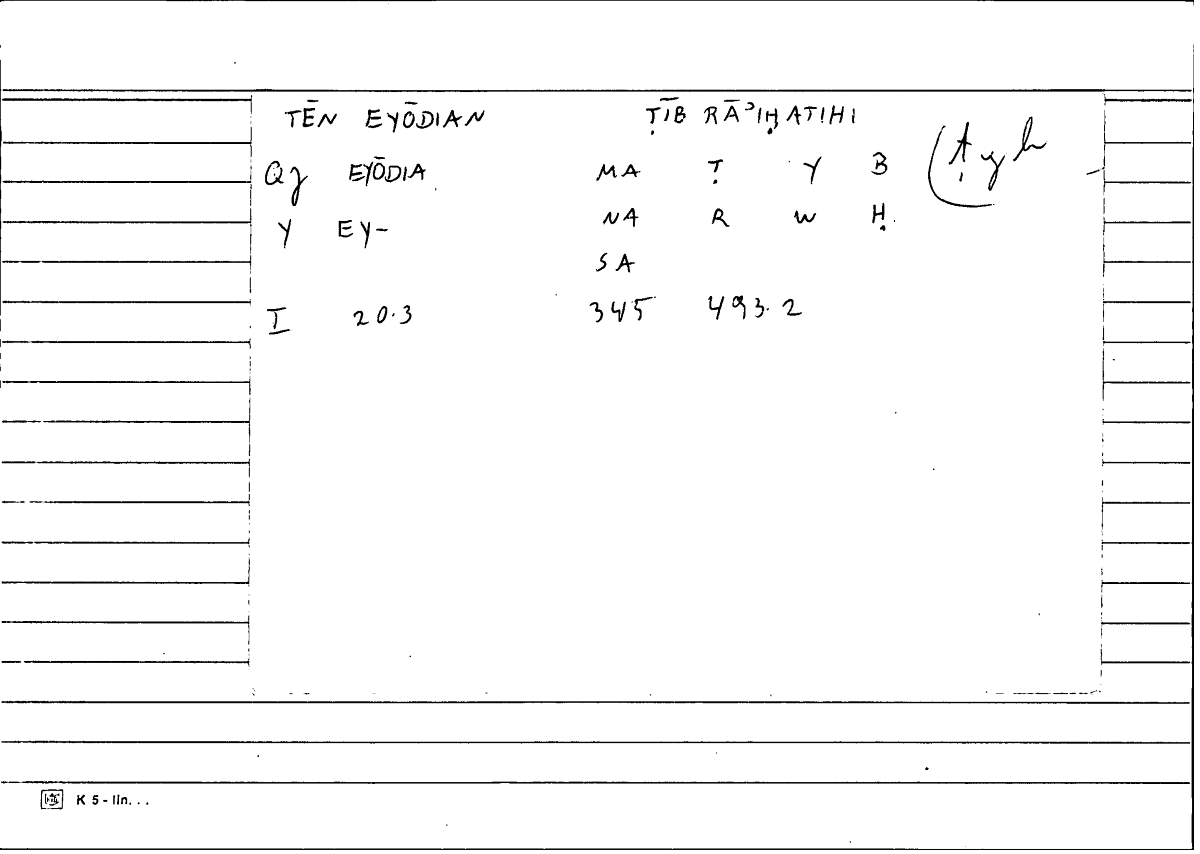 TĒN EYŌDIAN ṬĪB RĀʾIḤATIHI
Qg EYŌDIA MA Ṭ Y B ṭyb
Y EY- NA R W Ḥ.
SA
I 20.3 345 493.2
K 5 - lln. . .